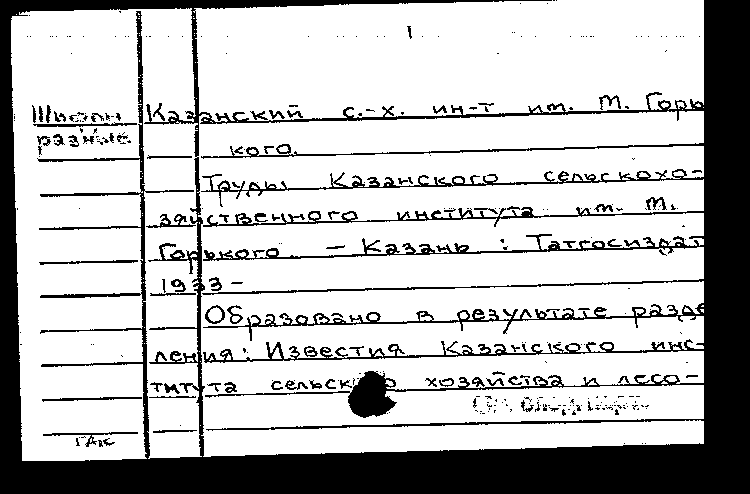 1
Шифры Казанский с.-х. ин-т им. М. Горь
разные
кого.
Труды Казанского сельскохо-
зяйственного института им. М.
Горького. — Казань : Татгосиздат
1933 –
Образовано в результате разде
ления: Известия Казанского инс-
титута сельского хозяйства и лесо-
См. след. карт.